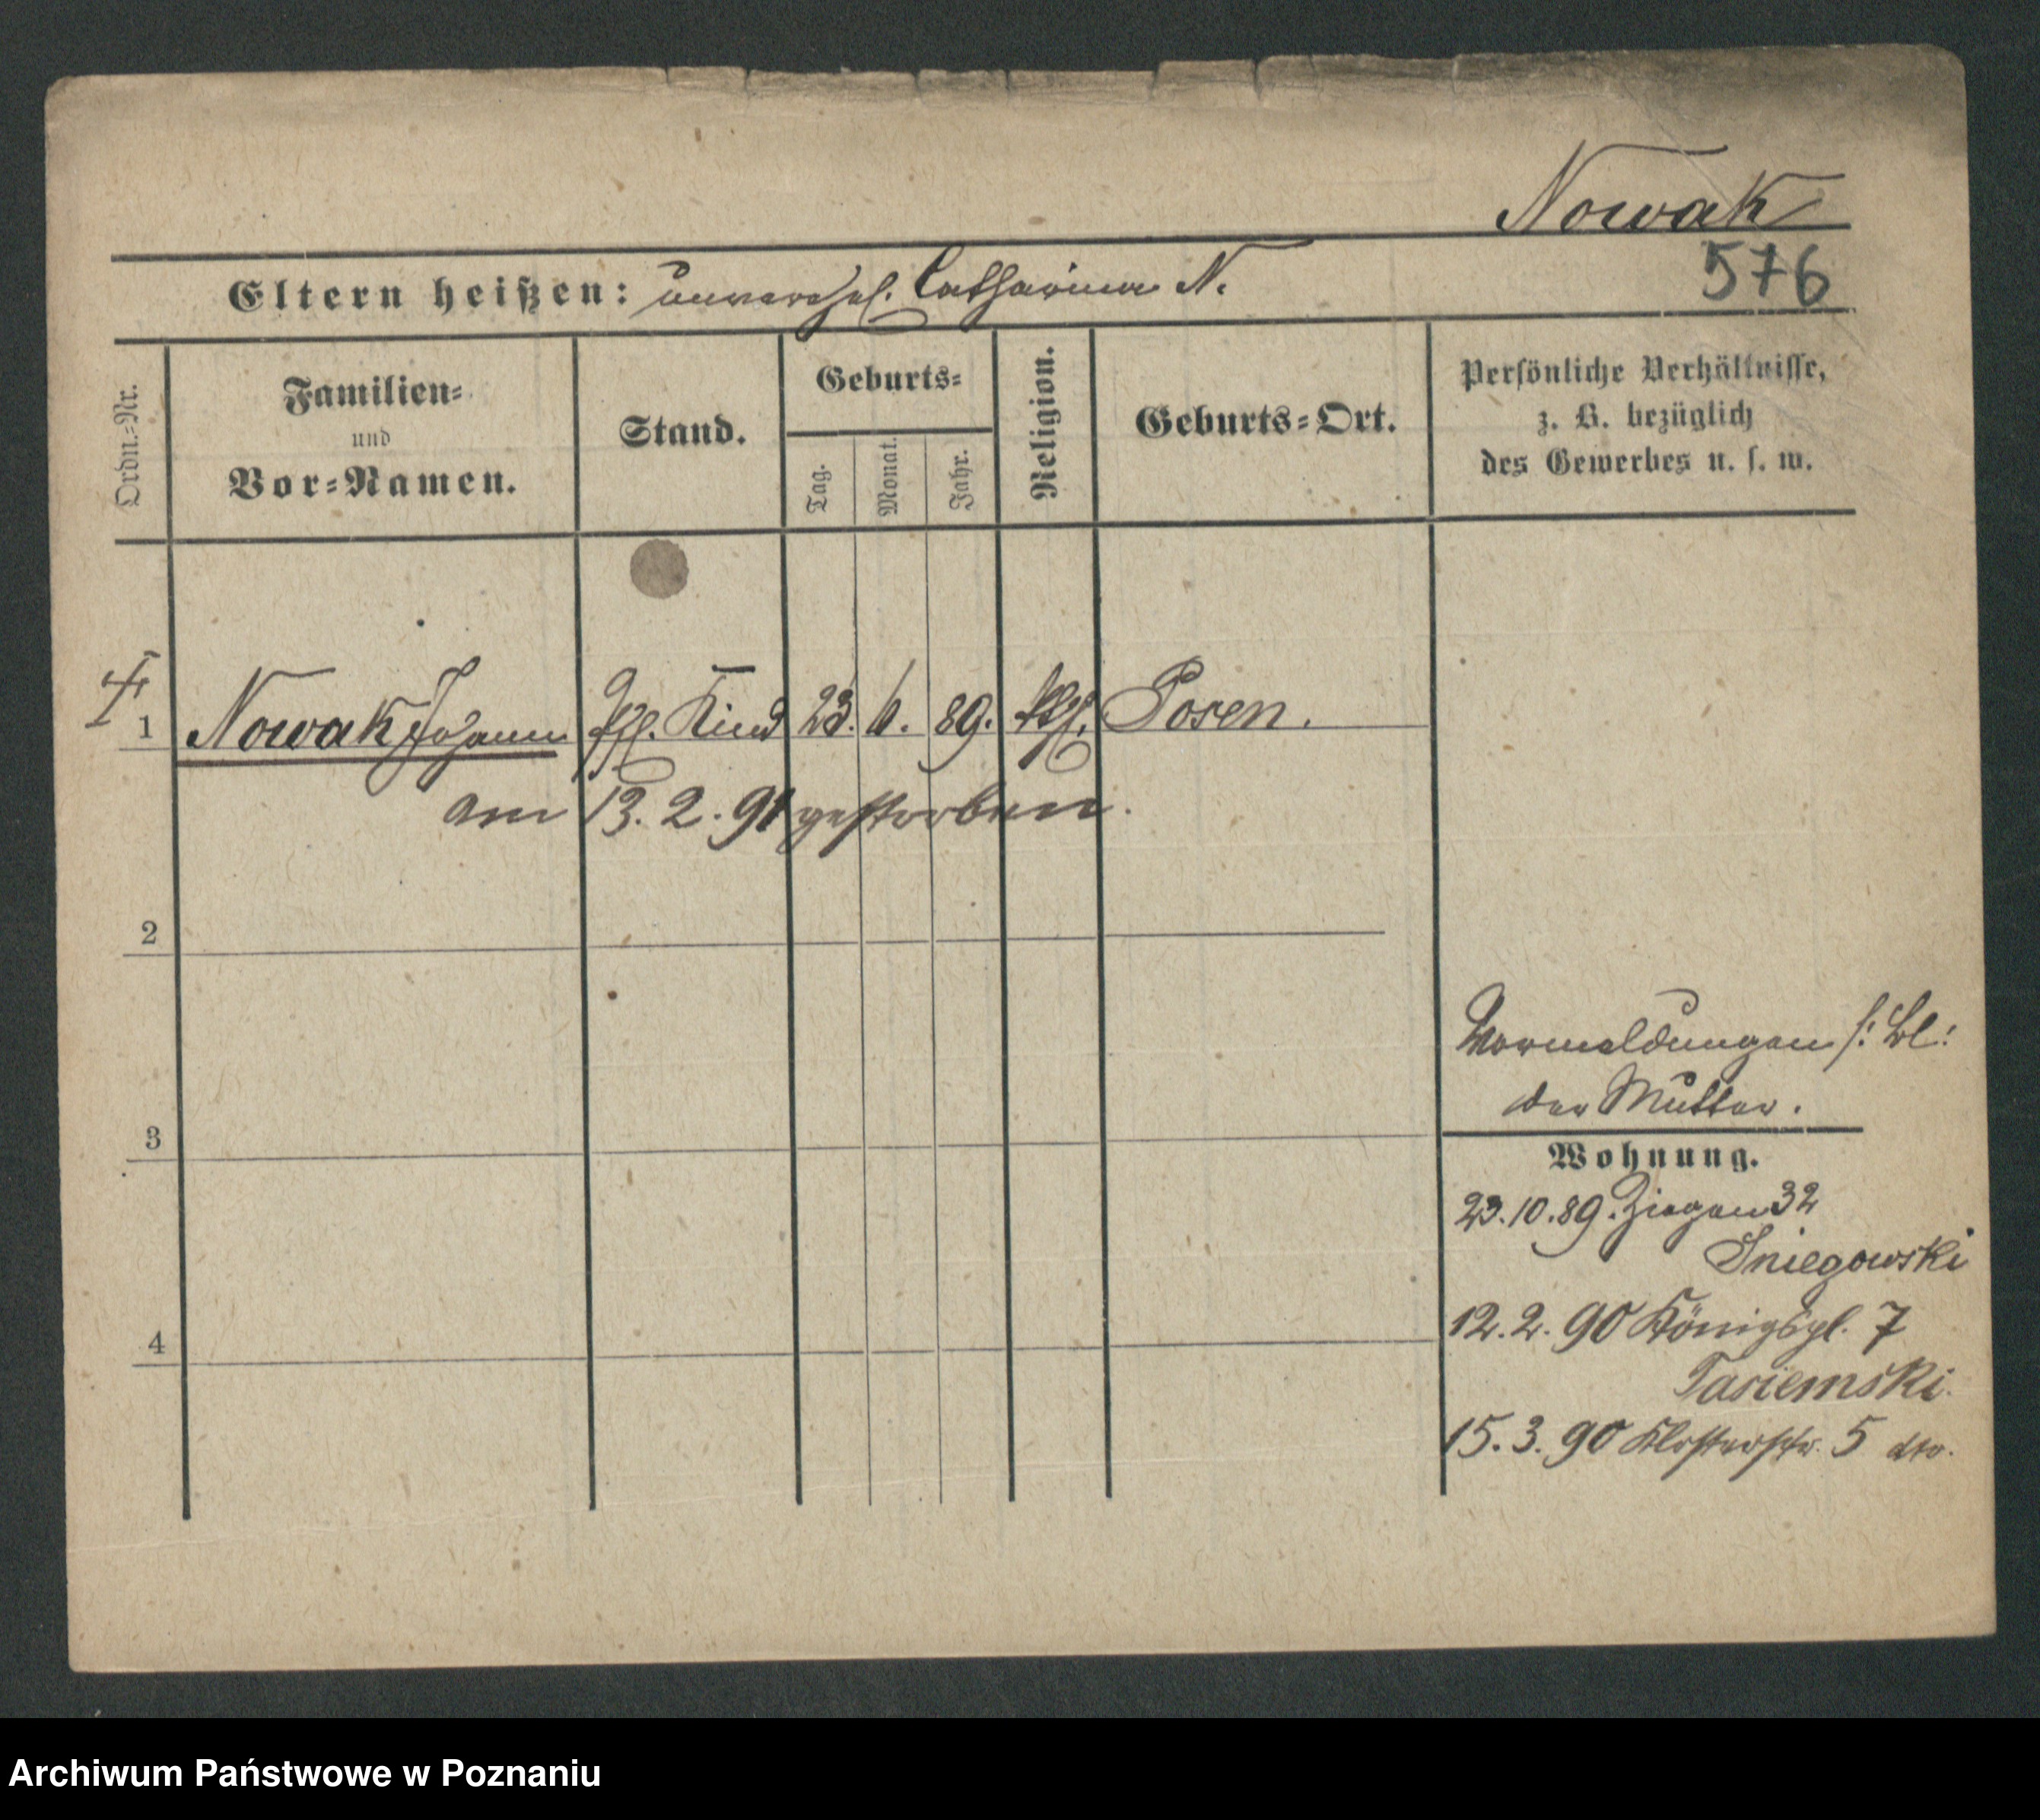 Nowak
576
Eltern heißen: unverehel. Catharina N.
Ordn.=Nr.
Familien=
und
Vor=Namen.
Stand.
Geburts=
Tag.
Monat.
Jahr.
Religion.
Geburts=Ort.
Persönliche Verhältnisse,
z. B. bezüglich
des Gewerbes u. s. w.
1 Nowak Johann Kind 23. 6. 89. kth. Posen.
am 13. 2. 91 gestorben.
2
Vormeldungen s: Bl:
der Mutter.
3
Wohnung.
23.10.89. Ziegen 32
Sniegowski
12.2.90 Königspl. 7
4
Tasiemski
15.3.90 Klosterstr. 5 dto.
Archiwum Państwowe w Poznaniu